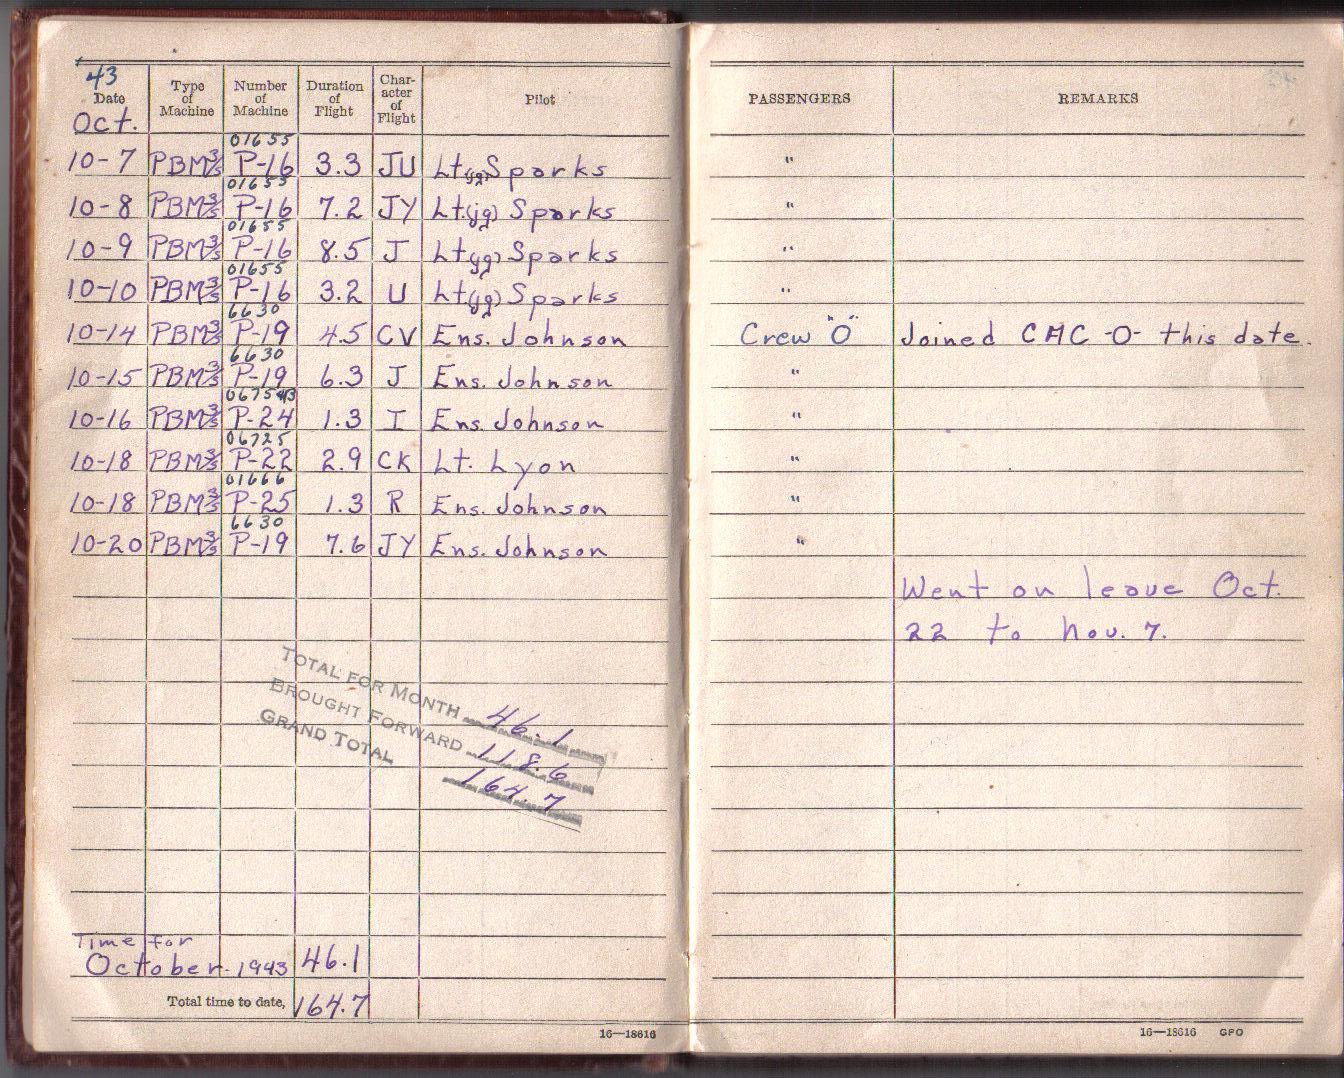 43
Date Type of Machine Number of Machine Duration of Flight Char-acter of Flight Pilot PASSENGERS REMARKS
Oct.
01655
10-7 PBM3/S P-16 3.3 JU Lt(jg) Sparks "
01655
10-8 PBM3/S P-16 7.2 JY Lt.(jg) Sparks "
01655
10-9 PBM3/S P-16 8.5 J Lt(jg) Sparks "
01655
10-10 PBM3/S P-16 3.2 U Lt(jg) Sparks "
6630
10-14 PBM3/S P-19 4.5 CV Ens. Johnson Crew "O" Joined CAC -O- this date.
6630
10-15 PBM3/S P-19 6.3 J Ens. Johnson "
10-16 PBM3/S P-24 1.3 I Ens. Johnson "
06725
10-18 PBM3/S P-22 2.9 CK Lt. Lyon "
01666
10-18 PBM3/S P-25 1.3 R Ens. Johnson "
6630
10-20 PBM3/S P-19 7.6 JY Ens. Johnson "
Went on leave Oct.
22 to Nov. 7.
TOTAL FOR MONTH 46.1
BROUGHT FORWARD 118.6
GRAND TOTAL 164.7
Time for
October-1943 46.1
Total time to date, 164.7
16—18616 16—18616 GPO